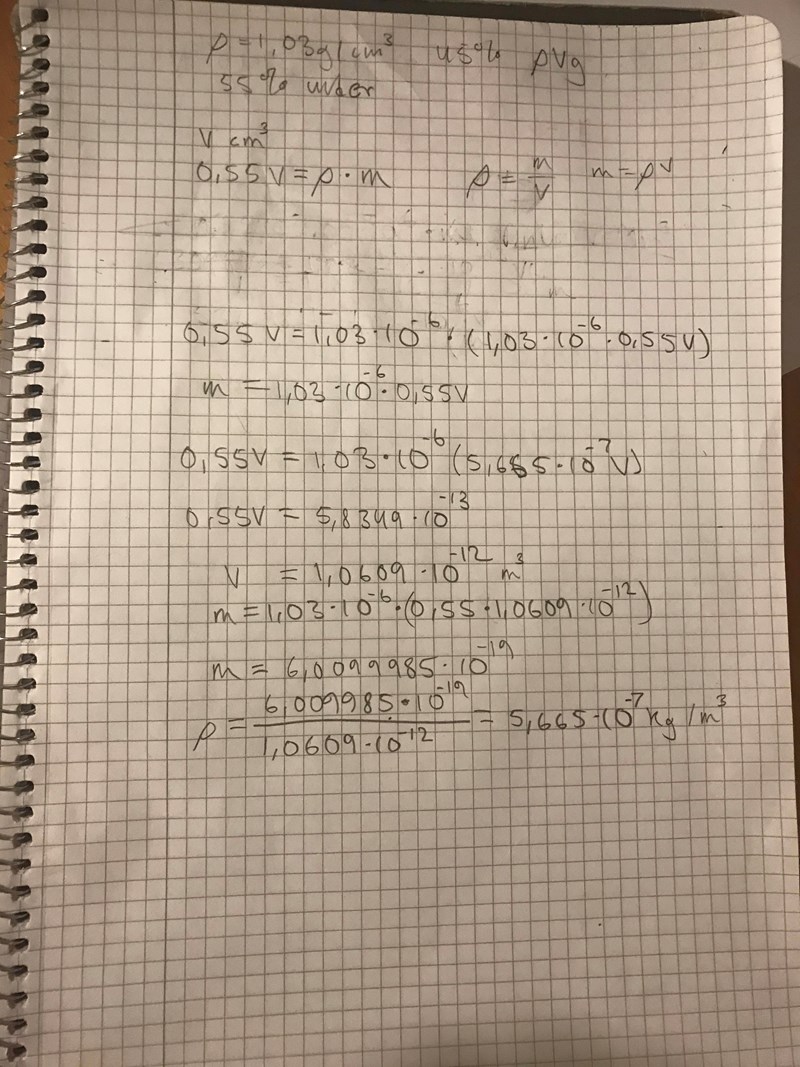 ρ = 1,03g/cm³ 45% ρVg
55% under
V cm³
0,55V = ρ · m ρ = m/V m = ρV
0,55 V = 1,03 · 10⁻⁶ · (1,03 · 10⁻⁶ · 0,55V)
m = 1,03 · 10⁻⁶ · 0,55V
0,55V = 1,03 · 10⁻⁶ (5,665 · 10⁻⁷ V)
0,55V = 5,8349 · 10⁻¹³
V = 1,0609 · 10⁻¹² m³
m = 1,03 · 10⁻⁶ · (0,55 · 1,0609 · 10⁻¹²)
m = 6,0099985 · 10⁻¹⁹
ρ = 6,009985 · 10⁻¹⁹ / 1,0609 · 10⁻¹² = 5,665 · 10⁻⁷ kg/m³